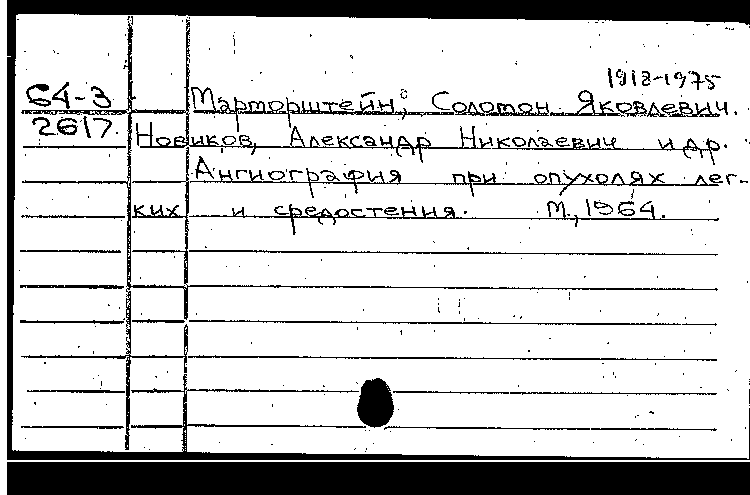 1912-1975
64-3 Марморштейн, Соломон Яковлевич.
2617. Новиков, Александр Николаевич и др.
Ангиография при опухолях лег-
ких и средостения. М., 1964.